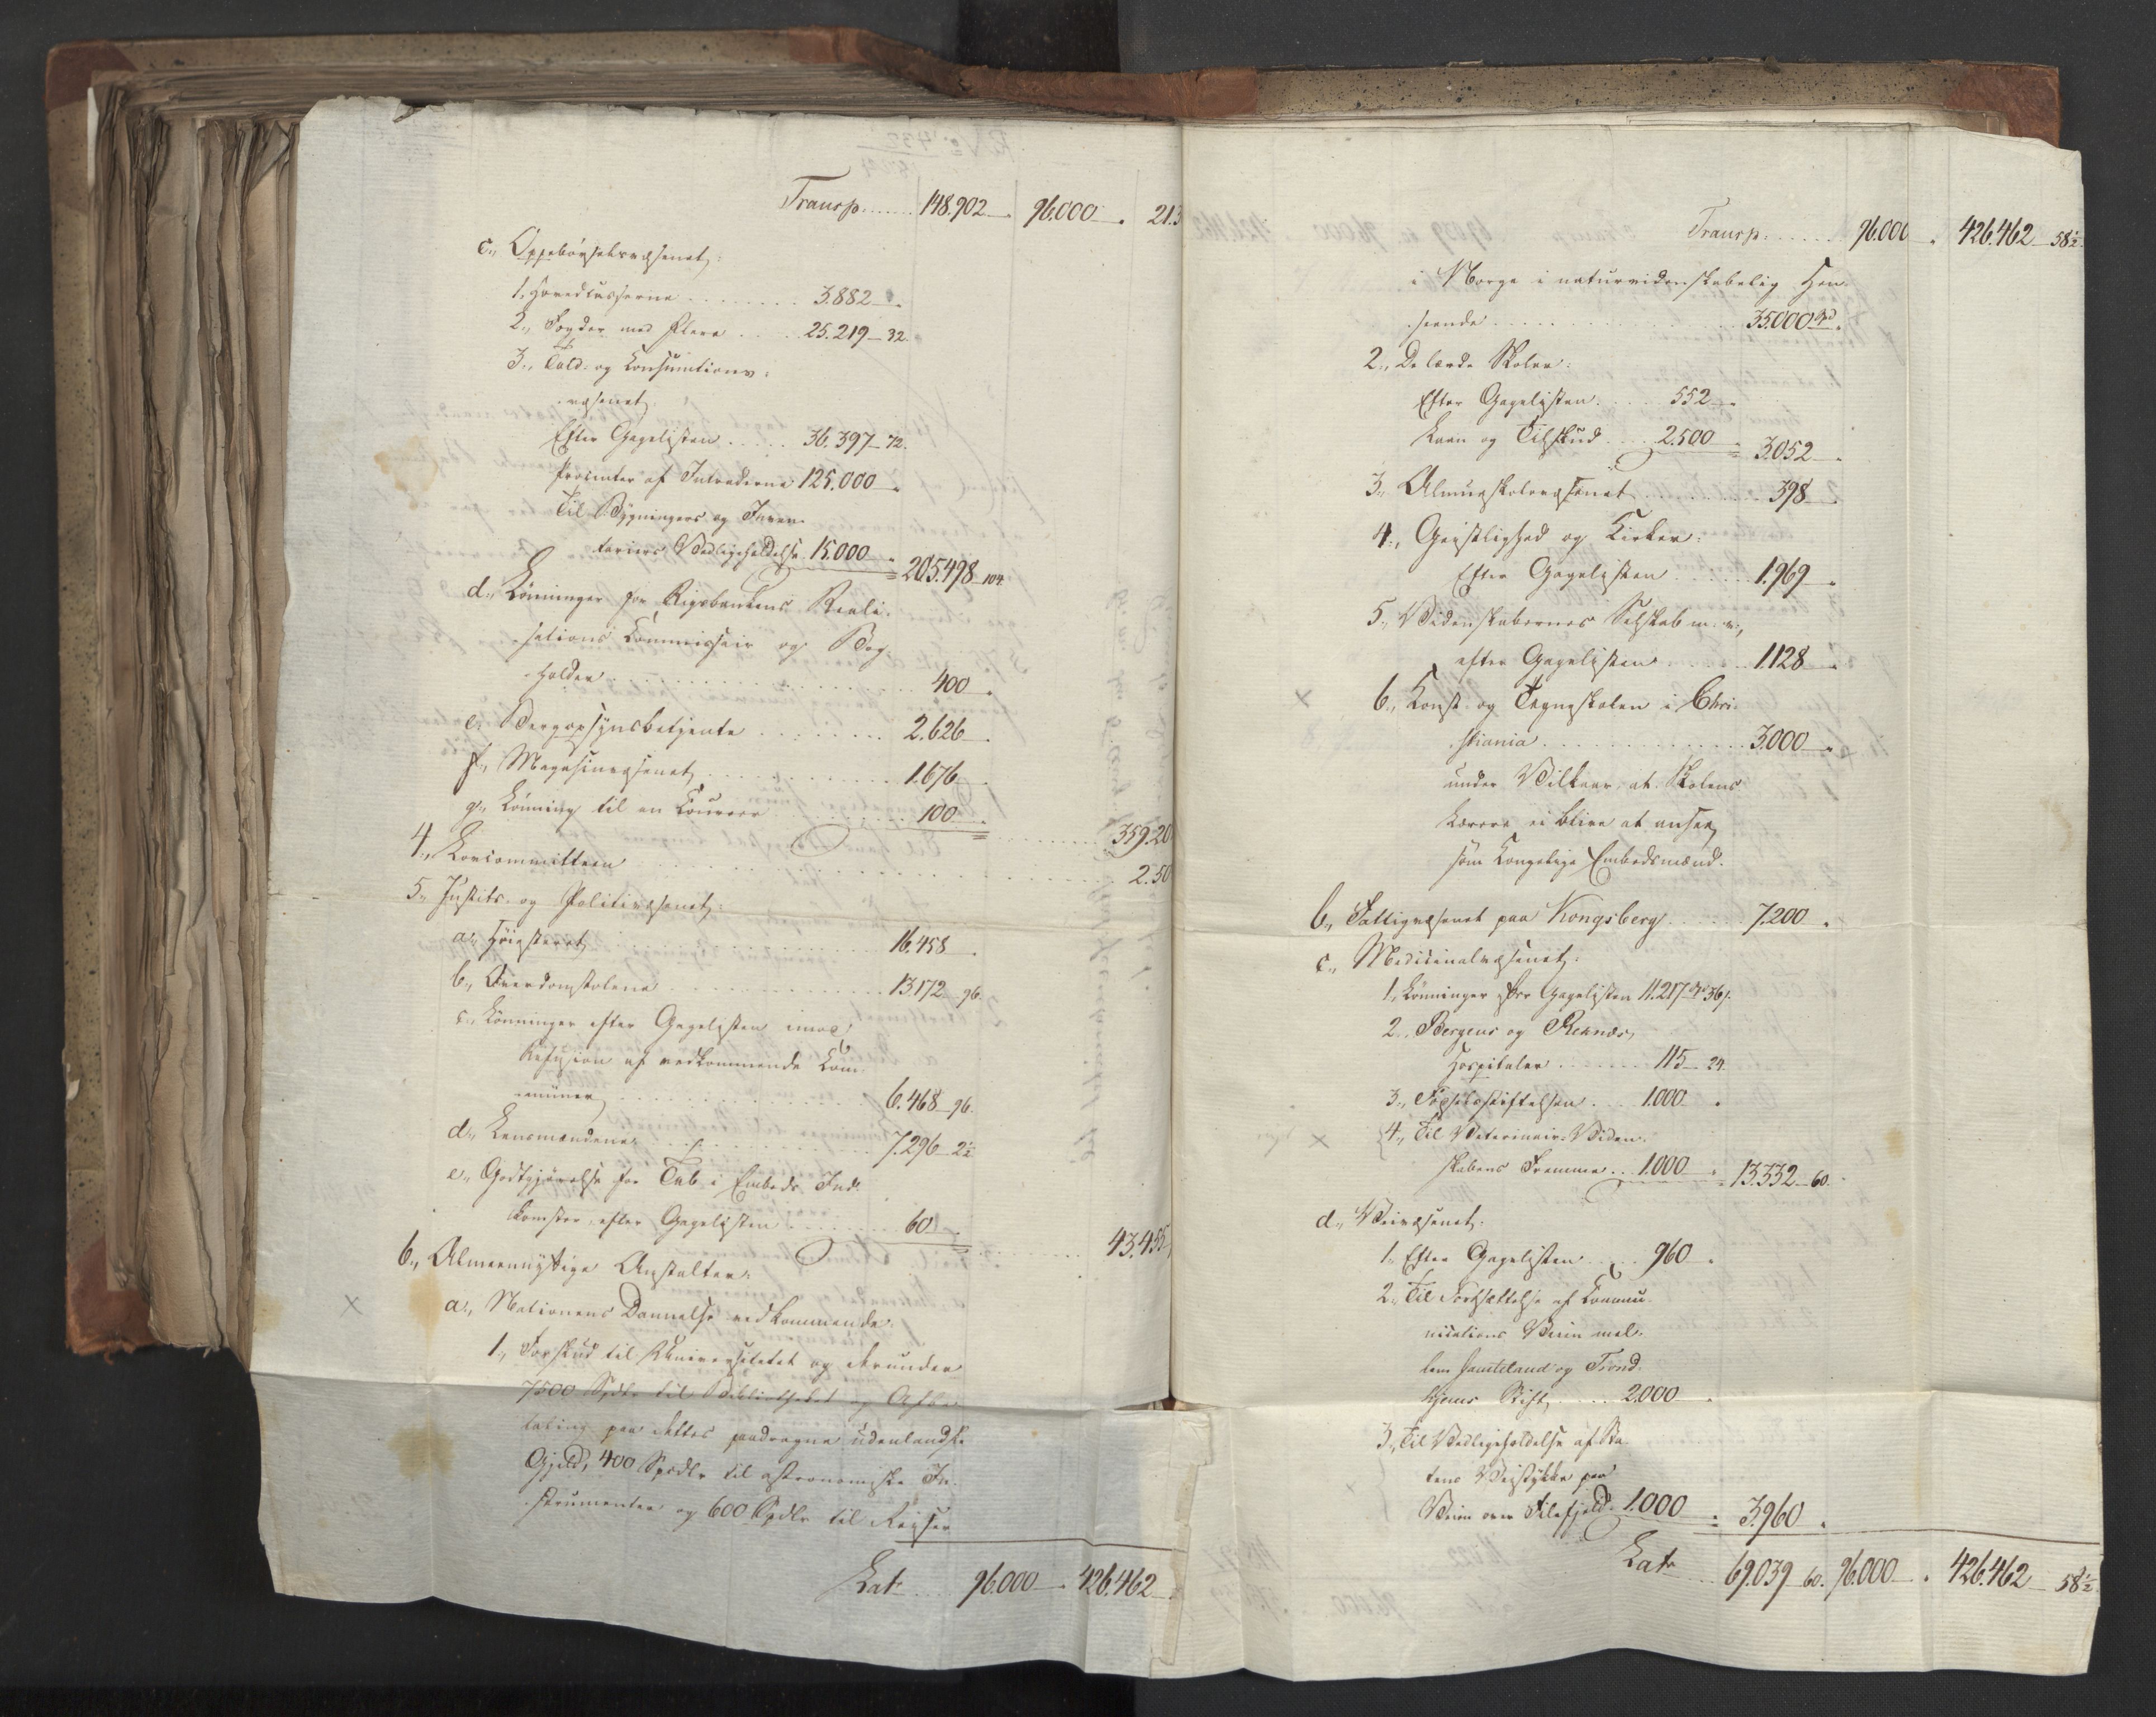 Transp. . . . . . 148.902 " 96.000 " 213
c., Oppebørselsvæsenet:
1., Hovedcasserne . . . . . . . . 3.882 "
2., Fogder med Flere . . . . 25.219 – 32.
3., Told- og Consumtions-
væsenet,
Efter Gagelisten . . . . . 36.397 – 72.
Procenter af Intraderne 125.000 "
Til Bygningers og Inven-
tariers Vedligeholdelse 15.000 " 205.498 – 104.
d., Lønninger for Rigsbankens Reali-
sations Commissair og Bog-
holder . . . . . . . . . . . . 400 "
e., Bergopsynsbetjente . . . . . . . . 2.626 "
f., Magasinvæsenet, . . . . . . . . . 1.676 "
g., Lønning til en Coureer . . . . . . 100 "
. . . . . . . 359.20
4., Lovcommitteen . . . . . . . . . . 2.50
5., Justits- og Politivæsenet:
a., Høiesteret, . . . . . . . . . . 16.458 "
b., Overdomstolene . . . . . . . . . 13.172 – 96.
c., Lønninger efter Gagelisten, imod
Refusion af vedkommende Com-
muner, . . . . . . . . . . 6.468 – 96.
d., Lensmændene, . . . . . . . . . 7.296 – 2½
e., Godtgjørelse for Tab i Embeds Ind-
komster, efter Gagelisten . . . . . . 60 "
. . . . . . . 43.455
6., Almeennyttige Anstalter:
× a., Nationens Dannelse vedkommende:
1., Forskud til Universitetet og derunder
7500 Spdlr til Bibliotheket og Afbe-
taling paa dettes paadragne udenlandske
Gjeld, 400 Spdlr til astronomiske In-
strumenter og 600 Spdlr til Reiser
Lat. . . . 96.000 " 426.462
Transp. . . . . . . 96.000 " 426.462 – 58½
i Norge i naturvidenskabelig Hen-
seende . . . . . . . . . . . 35.000
2., De lærde Skoler:
Efter Gagelisten . . . . 552 "
Laan og Tilskud . . . 2.500 " 3.052 "
3., Almueskolevæsenet . . . . . . . . 398 "
4., Geistlighed og Kirker:
Efter Gagelisten . . . . . 1.969 "
5., Videnskabernes Selskab m. v.,
efter Gagelisten . . . . . 1.128 "
× 6., Konst- og Tegneskolen i Chri-
stiania . . . . . . . . . . . . 3.000 "
under Vilkaar, at Skolens
Lærere ei blive at ansee,
som Kongelige Embedsmænd.
b., Fattigvæsenet paa Kongsberg . . . . . 7.200 "
c., Medicinalvæsenet:
1., Lønninger efter Gagelisten 11.217 36
2., Bergens og Reknæs,
Hospitaler . . . . . . . 115 – 24.
3., Fødselsstiftelsen . . . 1.000 "
× 4., Til Veterinair-Viden-
skabens Fremme . . 1.000 " 13.332 – 60.
d., Veivæsenet:
1., Efter Gagelisten . . . . 960 "
2., Til Fortsættelse af Commu-
nications Veien mel-
lem Jamteland og Trond-
hjems Stift, . . . . 2.000 "
3., Til Vedligeholdelse af Sta-
tens Veistykke paa
Veien over Filefjeld. 1.000 " 3.960 "
Lat. 69.039 60. 96.000 " 426.462 – 58½